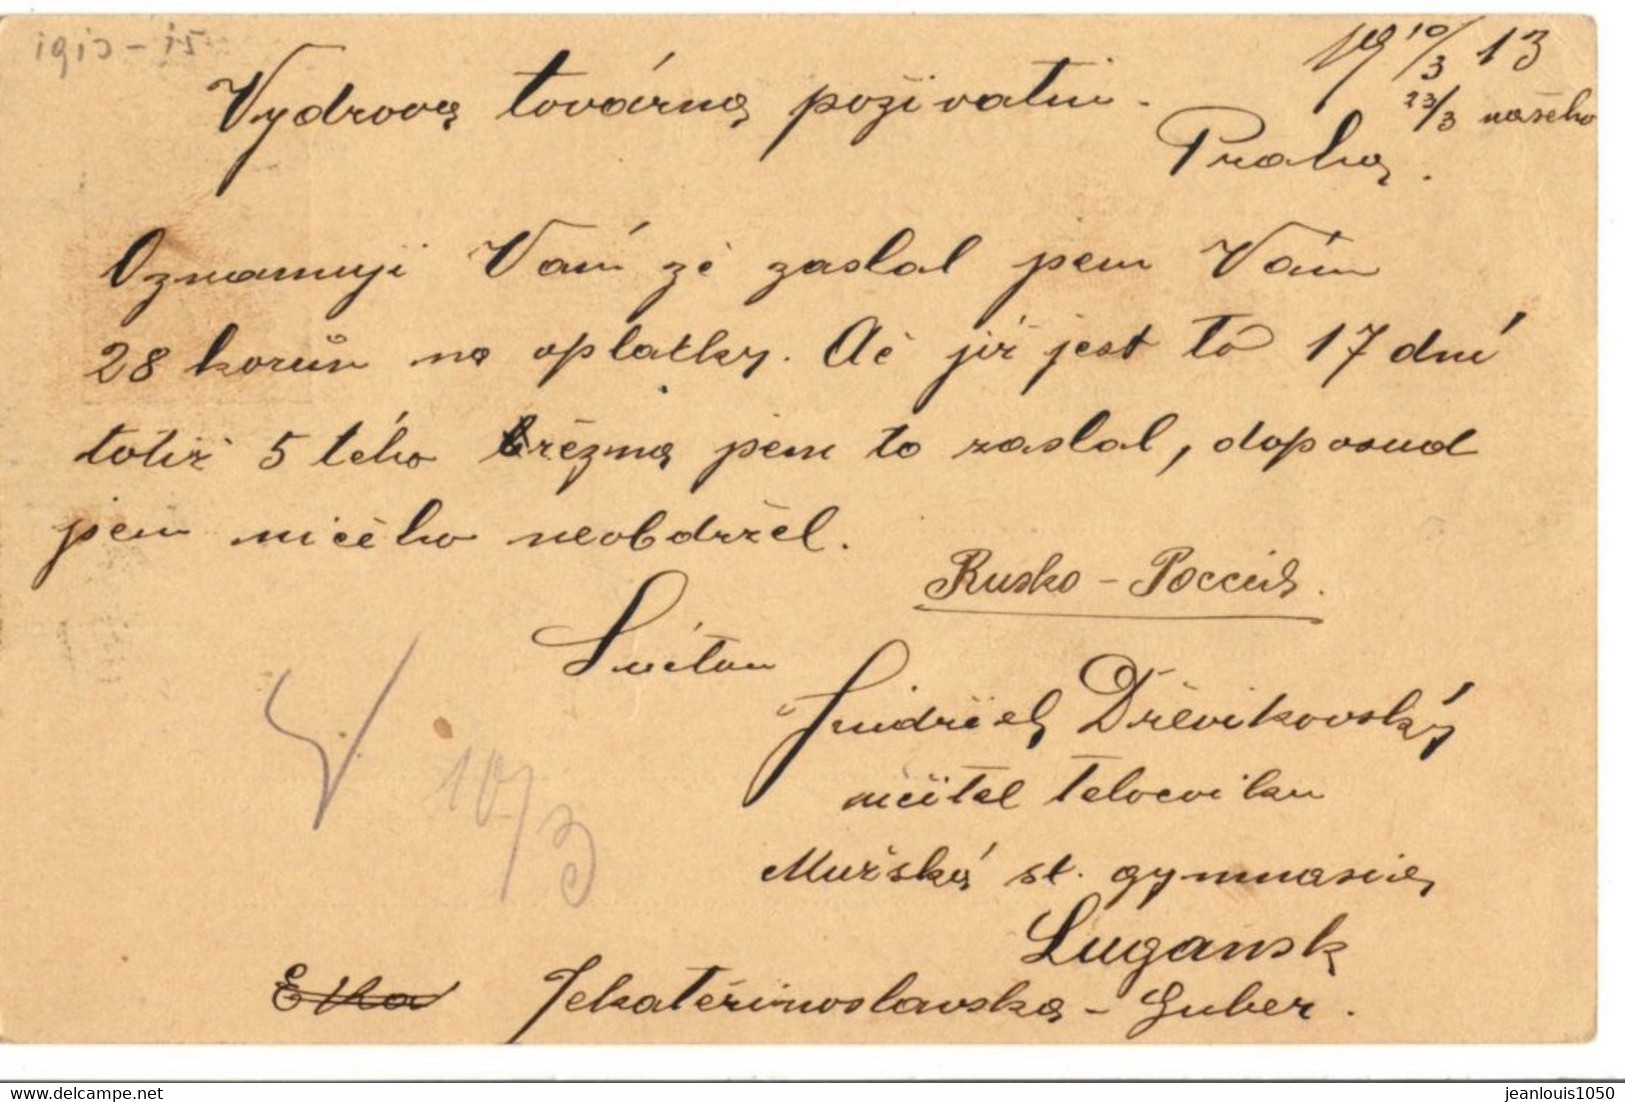 19 10/3 13
23/3 našeho
Vydrova továrna poživatin.
Praha.
Oznamuji Vám že zaslal jsem Vám
28 korun na oplatky. Ač již jest to 17 dní
totiž 5 tého března jsem to zaslal, doposud
jsem ničeho neobdržel.
Rusko - Россия.
V úctou
Jindřich Dřevikovský
učitel tělocviku
Mužská st. gymnasia
Lugansk
Jekatěrinoslavska - Guber.
10/3
jeanlouis1050